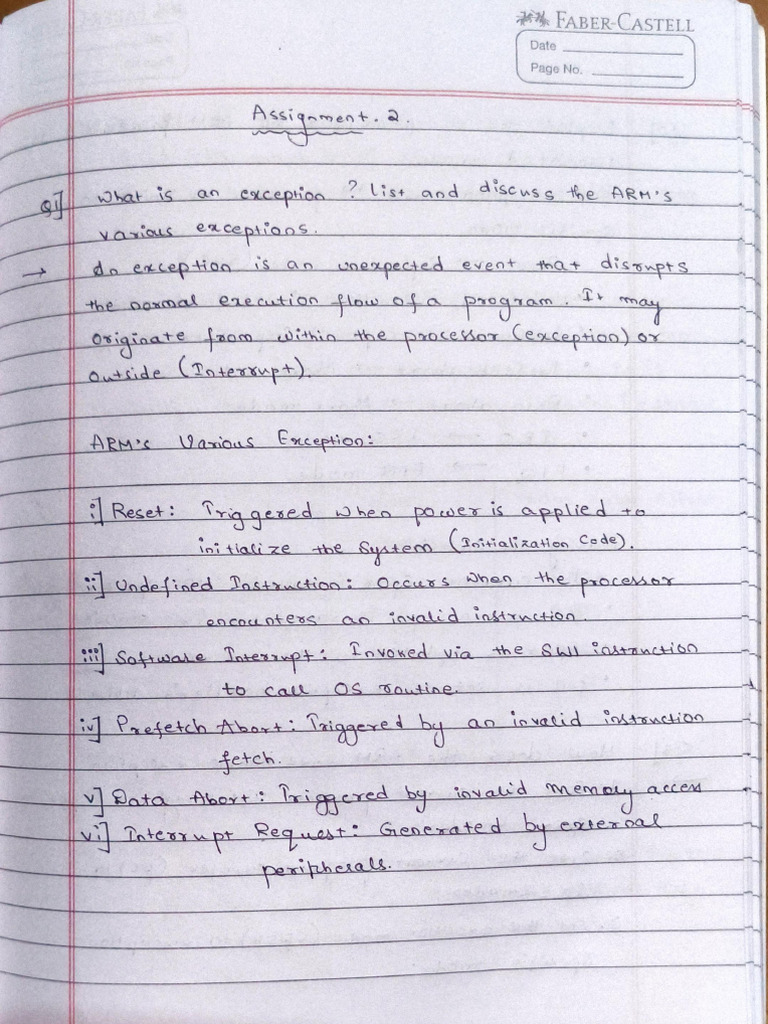 FABER-CASTELL
Date
Page No.
Assignment. 2.
Q1] What is an exception ? List and discuss the ARM's
various exceptions.
→ An exception is an unexpected event that disrupts
the normal execution flow of a program. It may
originate from within the processor (exception) or
outside (Interrupt).
ARM's Various Exception:
i] Reset: Triggered when power is applied to
initialize the System (Initialization Code).
ii] Undefined Instruction: Occurs when the processor
encounters an invalid instruction.
iii] Software Interrupt: Invoked via the SWI instruction
to call OS routine.
iv] Prefetch Abort: Triggered by an invalid instruction
fetch.
v] Data Abort: Triggered by invalid memory access
vi] Interrupt Request: Generated by external
peripherals.